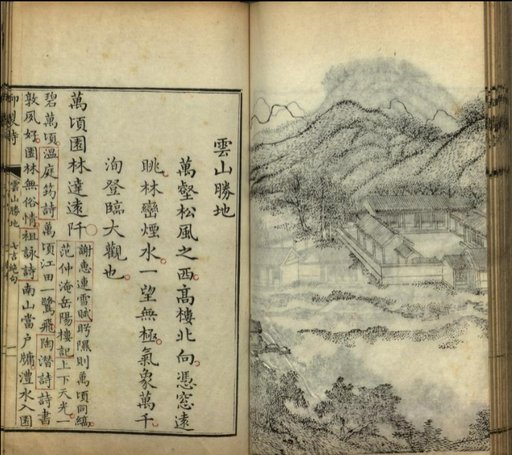 雲山勝地
萬壑松風之西高樓北向憑窓遠
眺林巒煙水一望無極氣象萬千
洵登臨大觀也
萬頃園林達遠阡
謝惠連雪賦眄隰則萬頃同縞
范仲淹岳陽樓記上下天光一
碧萬頃溫庭筠詩萬頃江田一鷺飛陶潛詩詩書
敦夙好園林無俗情祖詠詩南山當户牖灃水入園
御製詩
雲山勝地
七言絶句
一